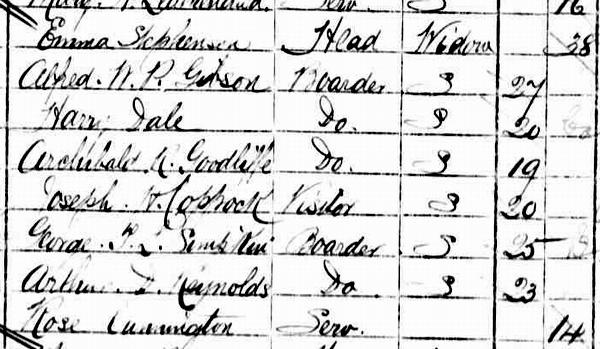 Mary. Serv. S 16
Emma Stephenson Head Widow 38
Alfred. W. P. Gibson Boarder S 27
Harry Dale Do. S 20
Archibald R. Goodliffe Do. S 19
Joseph. W. Coppock Visitor S 20
George. Simpkin Boarder S 25
Arthur. Reynolds Do S 23
Rose Cunnington Serv. 14